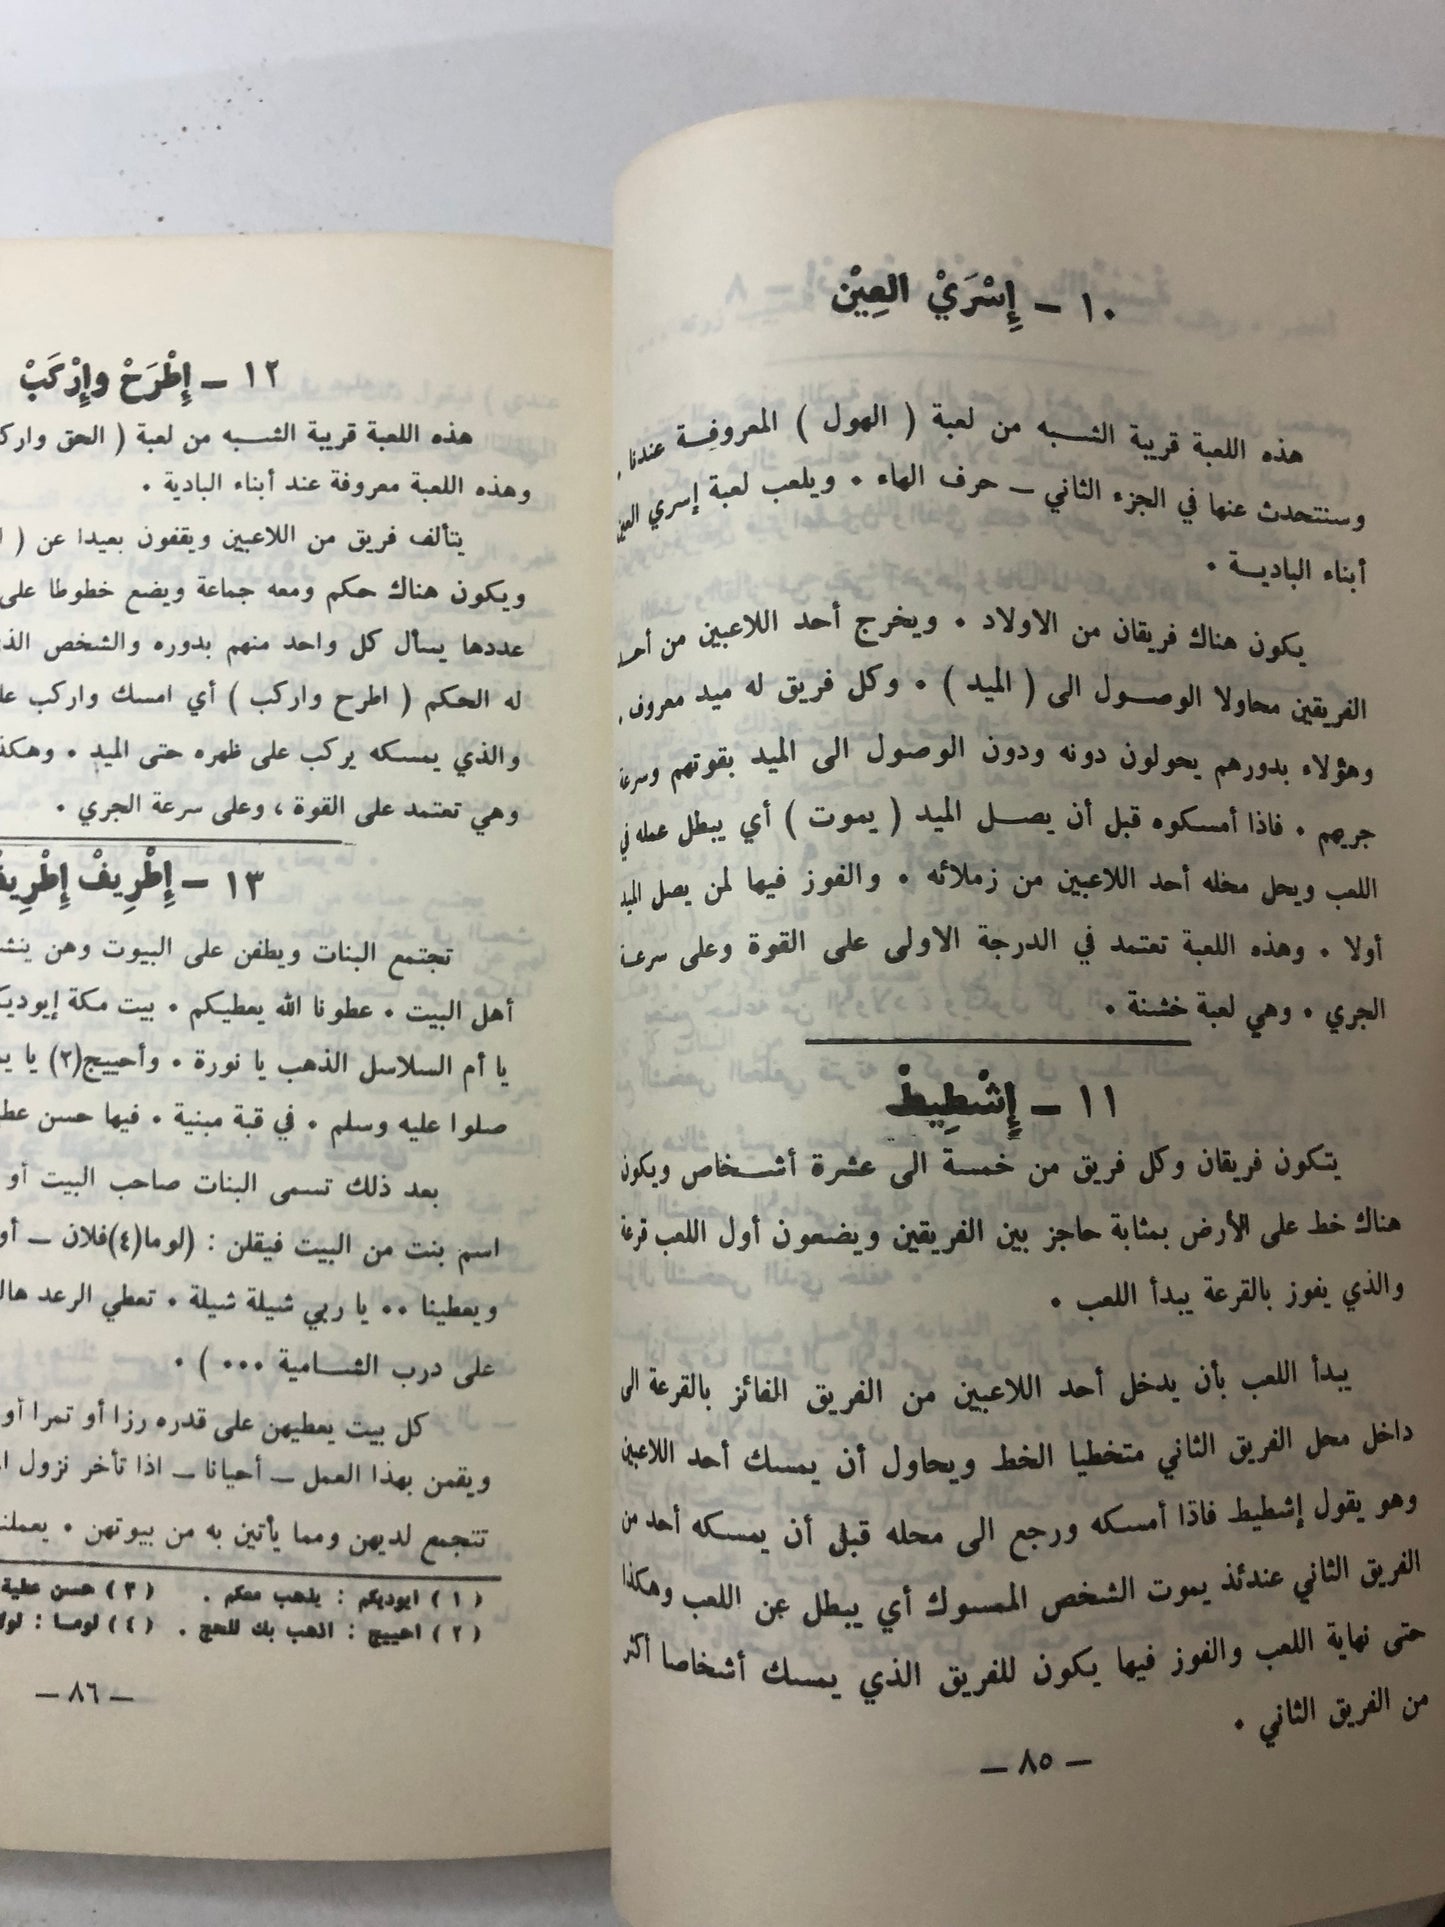 ١٠ ــ إِسْرَيْ العِيْن
هذه اللعبة قريبة الشبه من لعبة ( الهول ) المعروفة عندنا .
وسنتحدث عنها في الجزء الثاني ــ حرف الهاء . ويلعب لعبة إسري العين
أبناء البادية .
يكون هناك فريقان من الاولاد . ويخرج أحد اللاعبين من أحد
الفريقين محاولا الوصول الى ( الميد ) . وكل فريق له ميد معروف .
وهؤلاء بدورهم يحولون دونه ودون الوصول الى الميد بقوتهم وسرعة
جريهم . فاذا أمسكوه قبل أن يصل الميد ( يموت ) أي يبطل عمله في
اللعب ويحل محله أحد اللاعبين من زملائه . والفوز فيها لمن يصل الميد
أولا . وهذه اللعبة تعتمد في الدرجة الاولى على القوة وعلى سرعة
الجري . وهي لعبة خشنة .
١١ ــ إِشْطِيطْ
يتكون فريقان وكل فريق من خمسة الى عشرة أشخاص ويكون
هناك خط على الأرض بمثابة حاجز بين الفريقين ويضعون أول اللعب قرعة
والذي يفوز بالقرعة يبدأ اللعب .
يبدأ اللعب بأن يدخل أحد اللاعبين من الفريق الفائز بالقرعة الى
داخل محل الفريق الثاني متخطيا الخط ويحاول أن يمسك أحد اللاعبين
وهو يقول إشطيط فاذا أمسكه ورجع الى محله قبل أن يمسكه أحد من
الفريق الثاني عندئذ يموت الشخص الممسوك أي يبطل عن اللعب وهكذا
حتى نهاية اللعب والفوز فيها يكون للفريق الذي يمسك أشخاصا أكثر
من الفريق الثاني .
ــ ٨٥ ــ
١٢ ــ إِطْرَحْ وإِرْكَبْ
هذه اللعبة قريبة الشبه من لعبة ( الحق
وهذه اللعبة معروفة عند أبناء البادية .
يتألف فريق من اللاعبين ويقفون بعيدا عن (
ويكون هناك حكم ومعه جماعة ويضع خطوطا على
عددها يسأل كل واحد منهم بدوره والشخص
له الحكم ( اطرح واركب ) أي امسك واركب
والذي يمسكه يركب على ظهره حتى الميد .
وهي تعتمد على القوة ، وعلى سرعة الجري .
١٣ ــ إِطْرِيفْ
تجتمع البنات ويطفن على البيوت وهن
أهل البيت . عطونا الله يعطيكم . بيت مكة
يا أم السلاسل الذهب يا نورة . وأحييج(٢) يا
صلوا عليه وسلم . في قبة مبنية . فيها حسن
بعد ذلك تسمى البنات صاحب البيت أو
اسم بنت من البيت فيقلن : (لوما(٤)فلان ــ
ويعطينا .. يا ربي شيلة شيلة . تعطي الرعد
على درب الشامية ... ) .
كل بيت يعطيهن على قدره رزا أو تمرا أو
ويقمن بهذا العمل ــ أحيانا ــ اذا تأخر نزول
تتجمع لديهن ومما يأتين به من بيوتهن .
( ١ ) ايوديكم : يذهب معكم . ( ٣ ) حسن عطية
( ٢ ) احييج : اذهب بك للحج . ( ٤ ) لوما :
ــ ٨٦ ــ